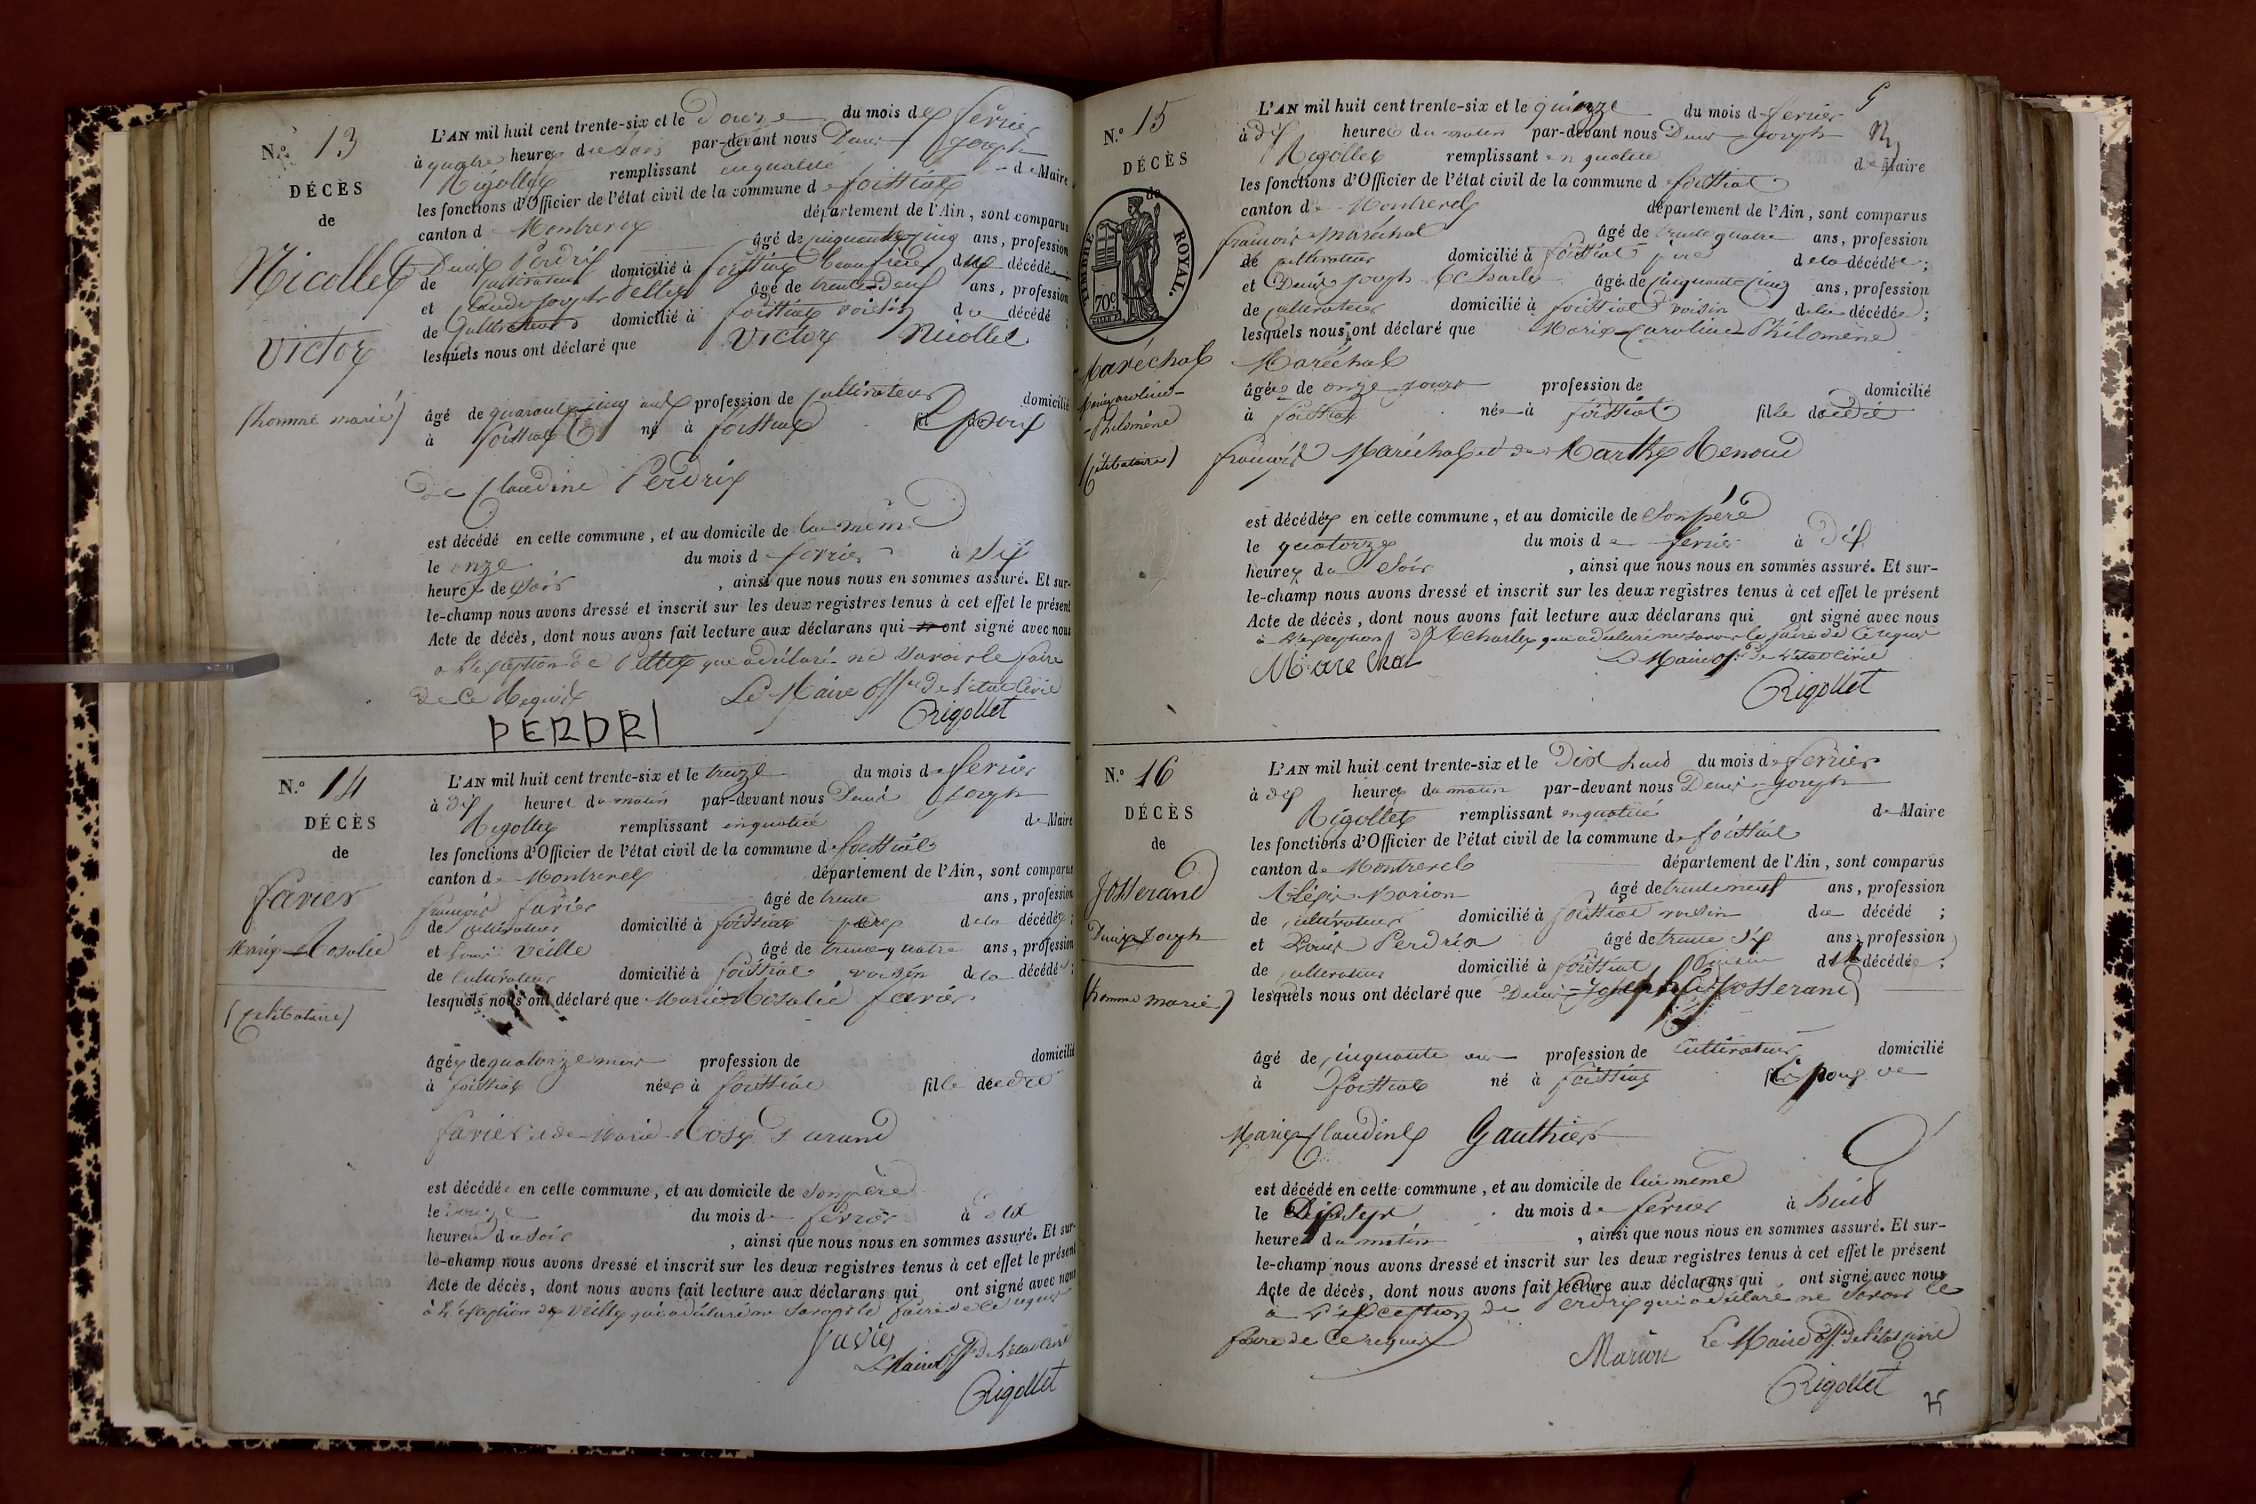 N.º 13
DÉCÈS
de
Nicollet
Victor
(homme marié)
L'AN mil huit cent trente-six et le Douze du mois de février
à quatre heures du soir par-devant nous Denis Joseph
Rigollet remplissant en qualité de Maire
les fonctions d'Officier de l'état civil de la commune de foissiat
canton de Montrevel département de l'Ain, sont comparus
Denis Perdrix âgé de cinquante cinq ans, profession
de cultivateur domicilié à foissiat beau frère du décédé
et Claude Joseph âgé de trente-deux ans, profession
de cultivateur domicilié à foissiat voisin du décédé ;
lesquels nous ont déclaré que Victor Nicollet
âgé de quarante-cinq ans profession de cultivateur domicilié
à foissiat né à foissiat époux
de Claudine Perdrix
est décédé en cette commune, et au domicile de lui même
le onze du mois de février à six
heures du soir, ainsi que nous nous en sommes assuré. Et sur-
le-champ nous avons dressé et inscrit sur les deux registres tenus à cet effet le présent
Acte de décès, dont nous avons fait lecture aux déclarans qui ont signé avec nous
à l'exception de qui a déclaré ne savoir le faire
de ce requis Le Maire off.er de l'état civil
PERDRI Rigollet
N.º 14
DÉCÈS
de
favier
Marie Rosalie
(célibataire)
L'AN mil huit cent trente-six et le treize du mois de février
à dix heures du matin par-devant nous Denis Joseph
Rigollet remplissant en qualité de Maire
les fonctions d'Officier de l'état civil de la commune de foissiat
canton de Montrevel département de l'Ain, sont comparus
françois favier âgé de trente ans, profession
de cultivateur domicilié à foissiat père de la décédée ;
et Louis Veille âgé de trente-quatre ans, profession
de cultivateur domicilié à foissiat voisin de la décédée ;
lesquels nous ont déclaré que Marie-Rosalie favier
âgée de quatorze mois profession de domicilié
à foissiat née à foissiat fille de
favier et de Marie Rose
est décédée en cette commune, et au domicile de son père
le douze du mois de février à
heures du soir, ainsi que nous nous en sommes assuré. Et sur-
le-champ nous avons dressé et inscrit sur les deux registres tenus à cet effet le présent
Acte de décès, dont nous avons fait lecture aux déclarans qui ont signé avec nous
à l'exception de Veille qui a déclaré ne savoir le faire de ce requis
favier
Le Maire off.er de l'état civil
Rigollet
N.º 15
DÉCÈS
de
TIMBRE ROYAL.
70c
Maréchal
Marie caroline
Philomène
(célibataire)
L'AN mil huit cent trente-six et le quinze du mois de fevrier
à dix heures du matin par-devant nous Denis Joseph
Rigollet remplissant en qualité de Maire
les fonctions d'Officier de l'état civil de la commune de foissiat
canton de Montrevel département de l'Ain, sont comparus
françois Maréchal âgé de trente quatre ans, profession
de cultivateur domicilié à foissiat père de la décédée ;
et Denis Joseph âgé de cinquante cinq ans, profession
de cultivateur domicilié à foissiat voisin de la décédée ;
lesquels nous ont déclaré que Marie-Caroline-Philomène
Maréchal
âgée de onze jours profession de domicilié
à foissiat née à foissiat fille de
françois Maréchal et de Marthe Renoud
est décédée en cette commune, et au domicile de son père
le quatorze du mois de fevrier à dix
heures du soir, ainsi que nous nous en sommes assuré. Et sur-
le-champ nous avons dressé et inscrit sur les deux registres tenus à cet effet le présent
Acte de décès, dont nous avons fait lecture aux déclarans qui ont signé avec nous
à l'exception de qui a déclaré ne savoir le faire de ce requis
Marechal Le Maire off.er de l'état civil
Rigollet
N.º 16
DÉCÈS
de
Josserand
Denis Joseph
(homme marié)
L'AN mil huit cent trente-six et le Dix huit du mois de fevrier
à dix heures du matin par-devant nous Denis-Joseph
Rigollet remplissant en qualité de Maire
les fonctions d'Officier de l'état civil de la commune de foissiat
canton de Montrevel département de l'Ain, sont comparus
Marion âgé de trente neuf ans, profession
de cultivateur domicilié à foissiat voisin du décédé ;
et Louis Perdrix âgé de trente six ans, profession
de cultivateur domicilié à foissiat du décédé ;
lesquels nous ont déclaré que Denis-Joseph Josserand
âgé de cinquante ans profession de cultivateur domicilié
à foissiat né à foissiat époux de
Marie-Claudine Gauthier
est décédé en cette commune, et au domicile de lui même
le Dix sept du mois de fevrier à huit
heures du matin, ainsi que nous nous en sommes assuré. Et sur-
le-champ nous avons dressé et inscrit sur les deux registres tenus à cet effet le présent
Acte de décès, dont nous avons fait lecture aux déclarans qui ont signé avec nous
à l'exception de Perdrix qui a déclaré ne savoir le
faire de ce requis Marion Le Maire off.er de l'état civil
Rigollet